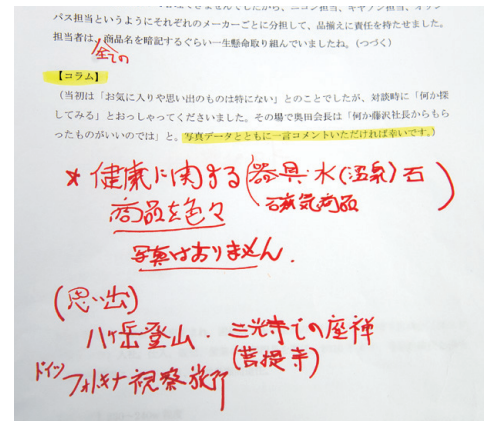 パス担当というようにそれぞれのメーカーごとに分担して、品揃えに責任を持たせました。
担当者は、全ての商品名を暗記するぐらい一生懸命取り組んでいましたね。(つづく)
【コラム】
(当初は「お気に入りや思い出のものは特にない」とのことでしたが、対談時に「何か探
してみる」とおっしゃってくださいました。その場で奥田会長は「何か藤沢社長からもら
ったものがいいのでは」と。写真データとともに一言コメントいただければ幸いです。)
* 健康に関する(器具・水(温泉)石
商品を色々 磁気商品)
写真はおりません.
(思い出)
八ヶ岳登山・三光寺での座禅
(菩提寺)
ドイツ
視察旅行